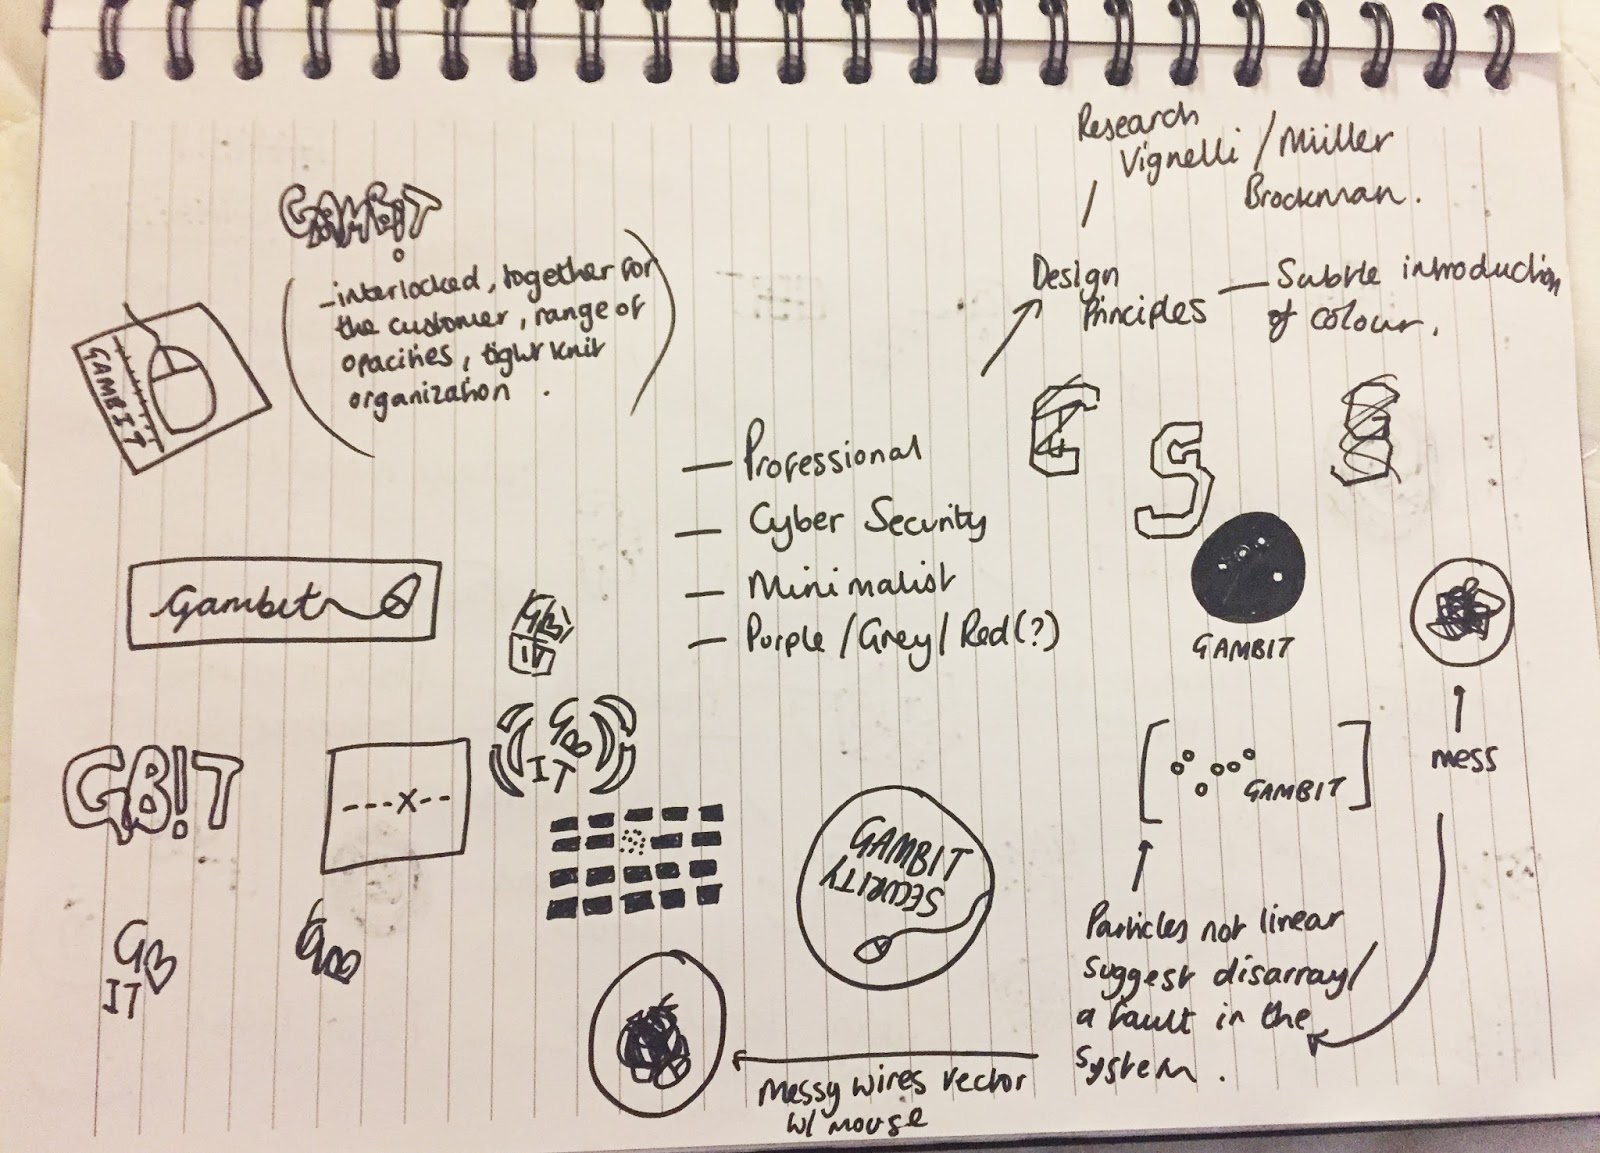 Research
Vignelli / Müller
Brockman.
GAMBIT
- interlocked, together for
the customer, range of
opacities, tight knit
organization .
Design
Principles
Subtle introduction
of colour.
GAMBIT
G
S
G
— Professional
— Cyber Security
— Minimalist
— Purple / Grey / Red (?)
Gambit
GB
IT
GAMBIT
GB!T
---X--
GB
IT
GAMBIT
mess
GAMBIT
SECURITY
GB
IT
GB
Particles not linear
suggest disarray/
a fault in the
system.
Messy wires vector
w/ mouse